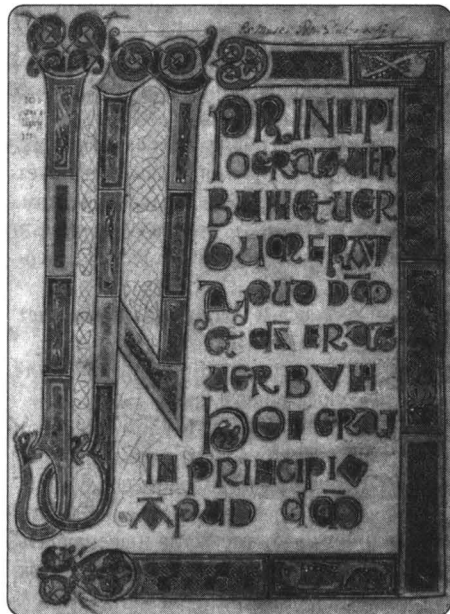 IN PRINCIPI
O ERAT UER
BUM ET UER
BUM ERAT
APUD DM̄
ET DS̄ ERAT
UERBUM
HOC ERAT
IN PRINCIPIO
APUD DM̄